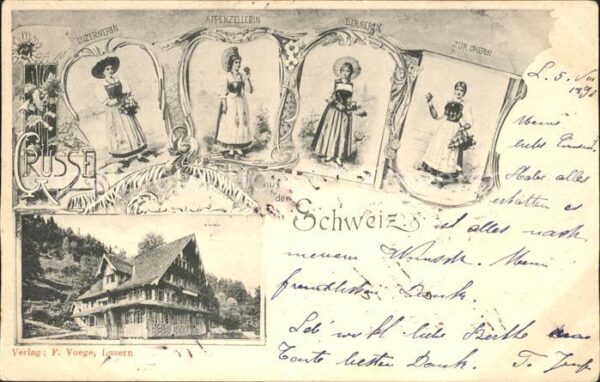 LUZERNERIN.
APPENZELLERIN
BERNERIN.
ZÜRCHERIN.
L. 5. VIII
1898
GRÜSSE
aus
der
Schweiz
Meine
liebe
Habe alles
erhalten es
ist alles nach
meinem Wunsch. Mein
freundlichsten Dank
Leb' wohl liebe
Tante besten Dank. T.
Verlag: F. Voege, Luzern